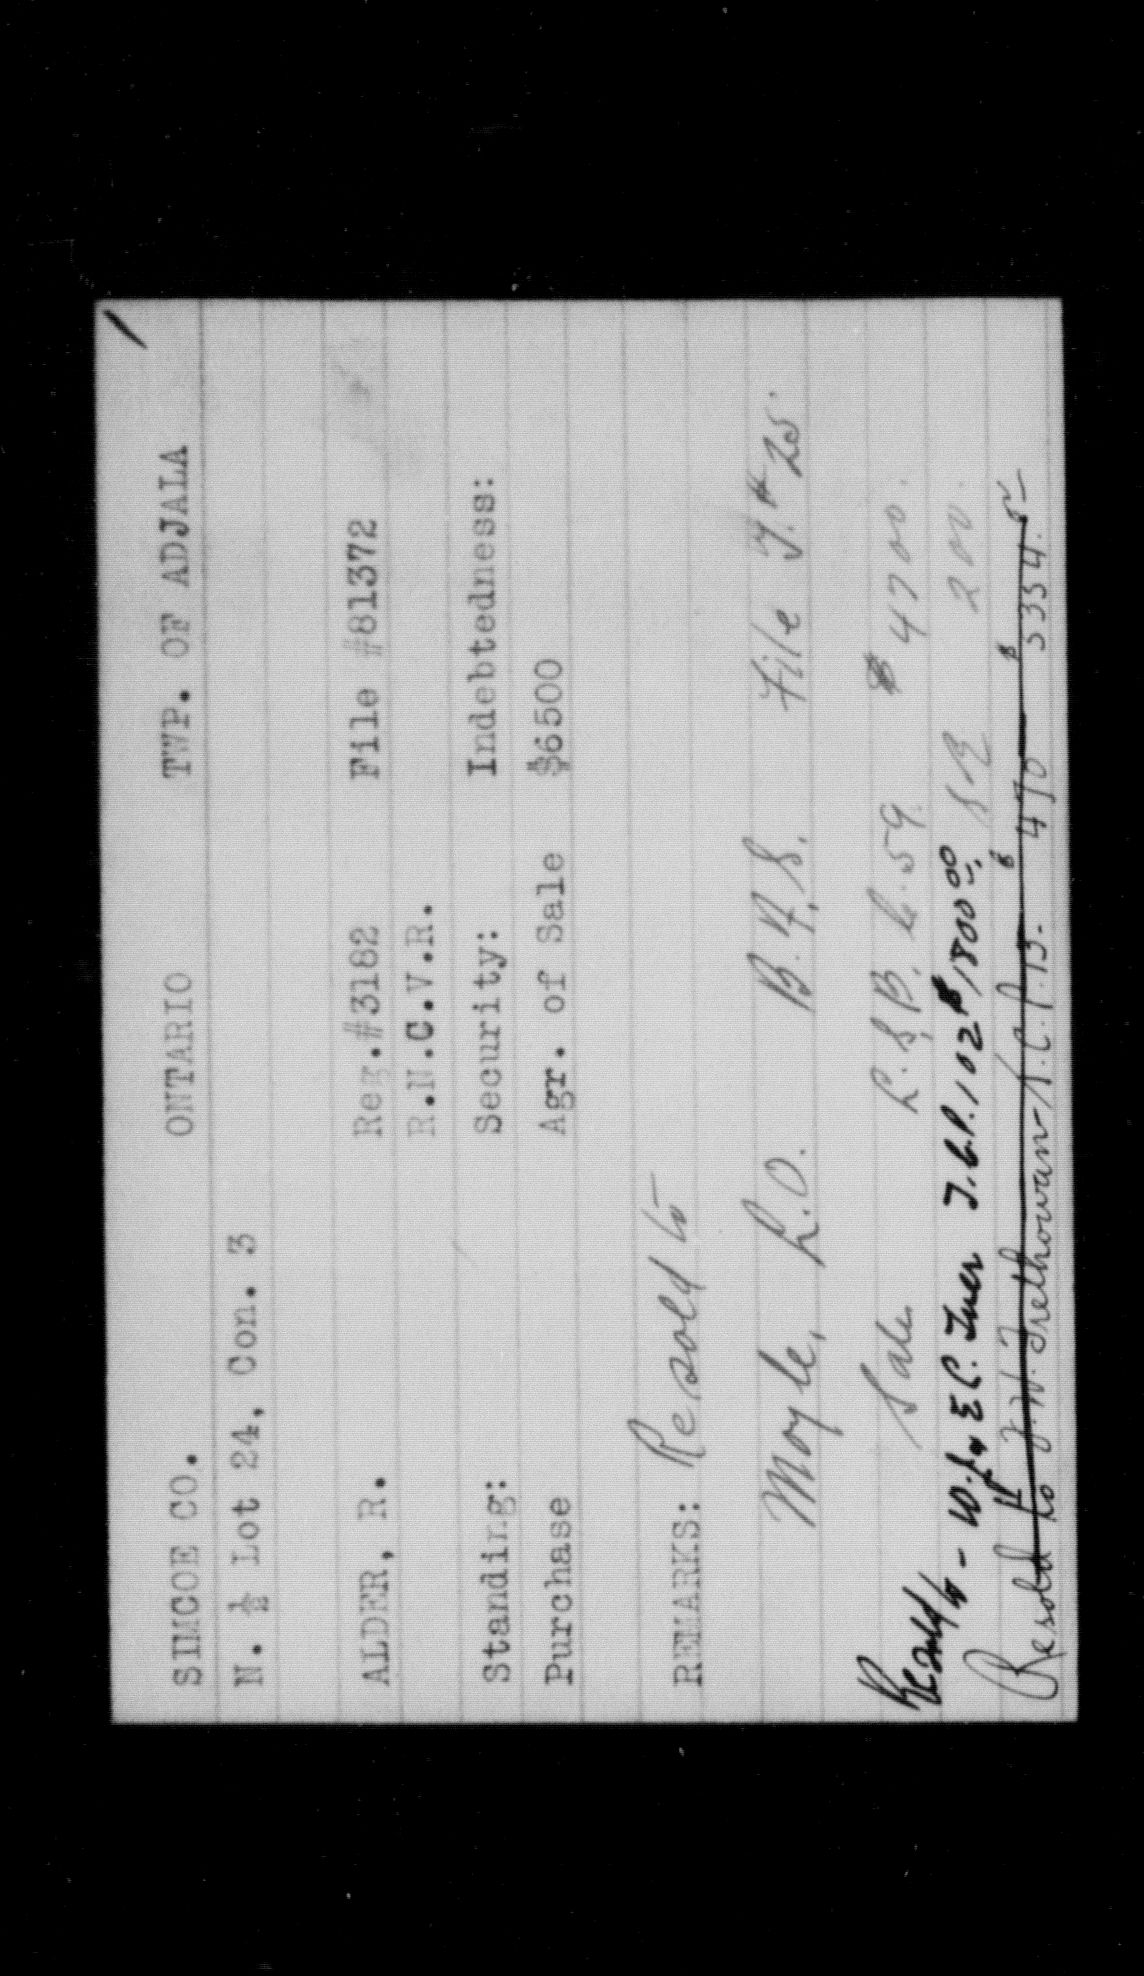 SIMCOE CO. ONTARIO TWP. OF ADJALA
N. ½ Lot 24, Con. 3
ALDER, R. Reg.#3182 File #81372
R.N.C.V.R.
Standing: Security: Indebtedness:
Purchase Agr. of Sale $6500
REMARKS: Resold to
Moyle, L.O. B. File 25.
Sale L.S.B. 59 $4700.
Resold to - W. & E C. 102 $1800.00 200.
Resold to J.W. Trethowan 15- $470 $5354.